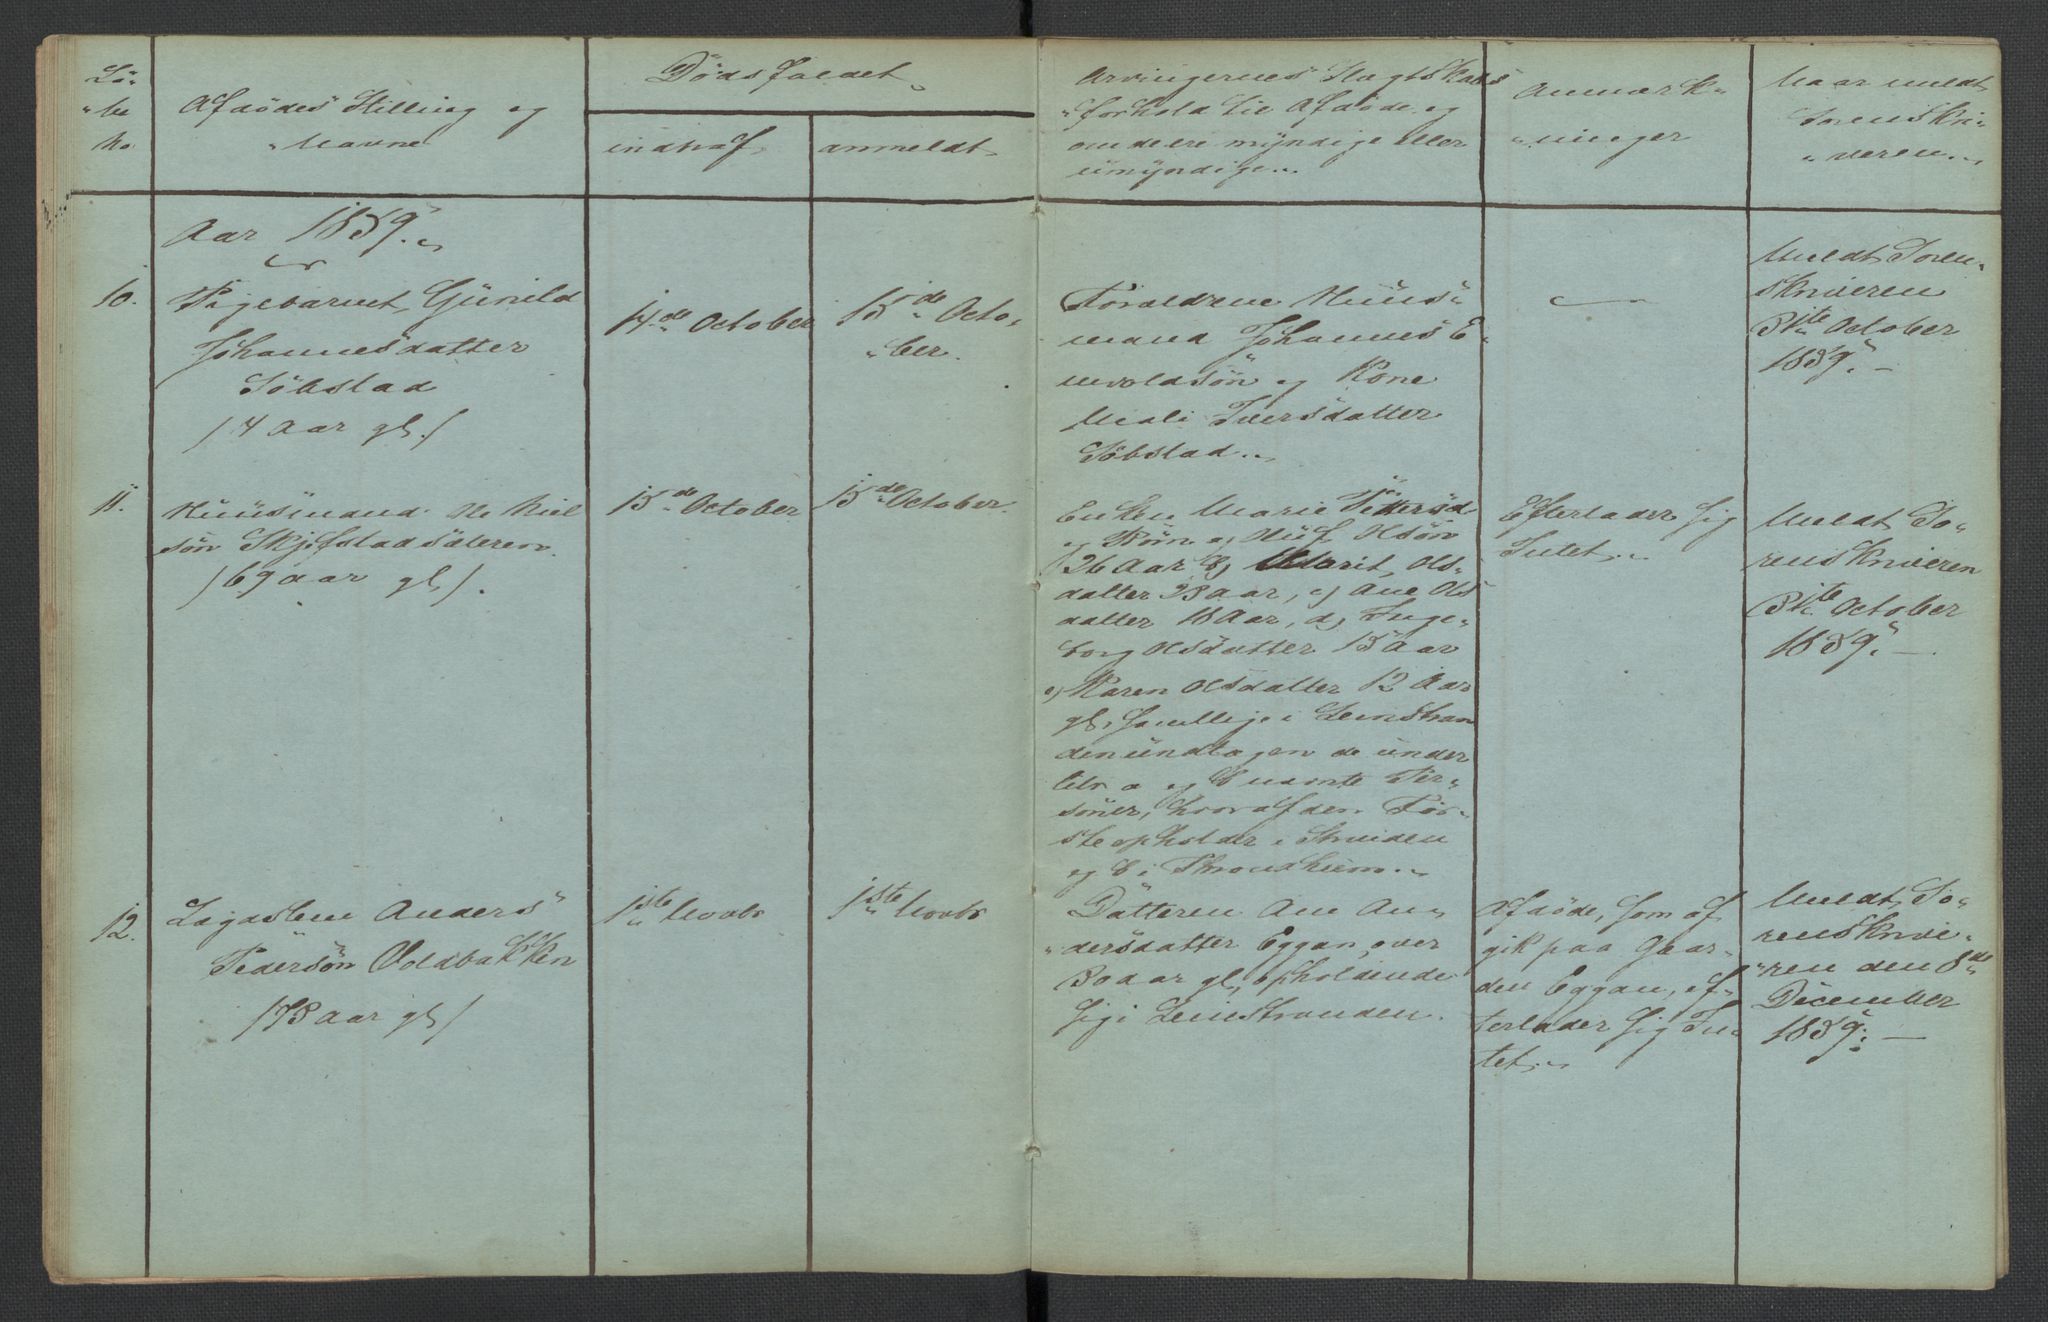 Lö-
be
No.
Afdödes Stilling og
Navne
Dödsfaldet
indtraf
anmeldt
Arvingernes Slægtskabs
forhold til Afdöde og
om de ere myndige eller
umyndige
Anmærk-
ninger
Naar meldt
Sorenskri-
veren
Aar 1859.
10.
Pigebarnet Gunild
Johannesdatter
Söbstad
/4 Aar gl./
14de October
15de Octo-
ber.
Forældrene Huus-
mand Johannes E-
nvoldsön og Kone
Mali Iversdatter
Söbstad
Meldt Soren-
skriveren
31te October
1859.
11.
Huusmand Ole Niel
sön Skjefstadsæteren
/69 aar gl/.
15de October
15de October
Enken Marie Pettersd
og Börn a) Oluf Olsön
26 Aar b) Marit Ols-
datter 23 aar, c) Ane Ols
datter 18 Aar, d) Inge-
borg Olsdatter 15 Aar
e) Karen Olsdatter 12 Aar
gl, samtlige i Leinstran
den undtagen de under
litr a og b nævnte Per-
soner, hvoraf den För-
ste opholder i Strinden
og b i Throndhiem.
Efterlader sig
Intet.
Meldt So-
renskriveren
31te October
1859.
12.
Lægdslem Anders
Pedersön Voldbakken
/78 aar gl/
1ste Novbr
1ste Novbr
Datteren Ane An-
dersdatter Eggan, over
30 aar gl, opholdende
sig i Leinstranden.
Afdöde, som af
gik paa Gaar-
den Eggan, ef-
terlader sig In-
tet.
Meldt So-
renskrive-
ren den 8de
December
1859.